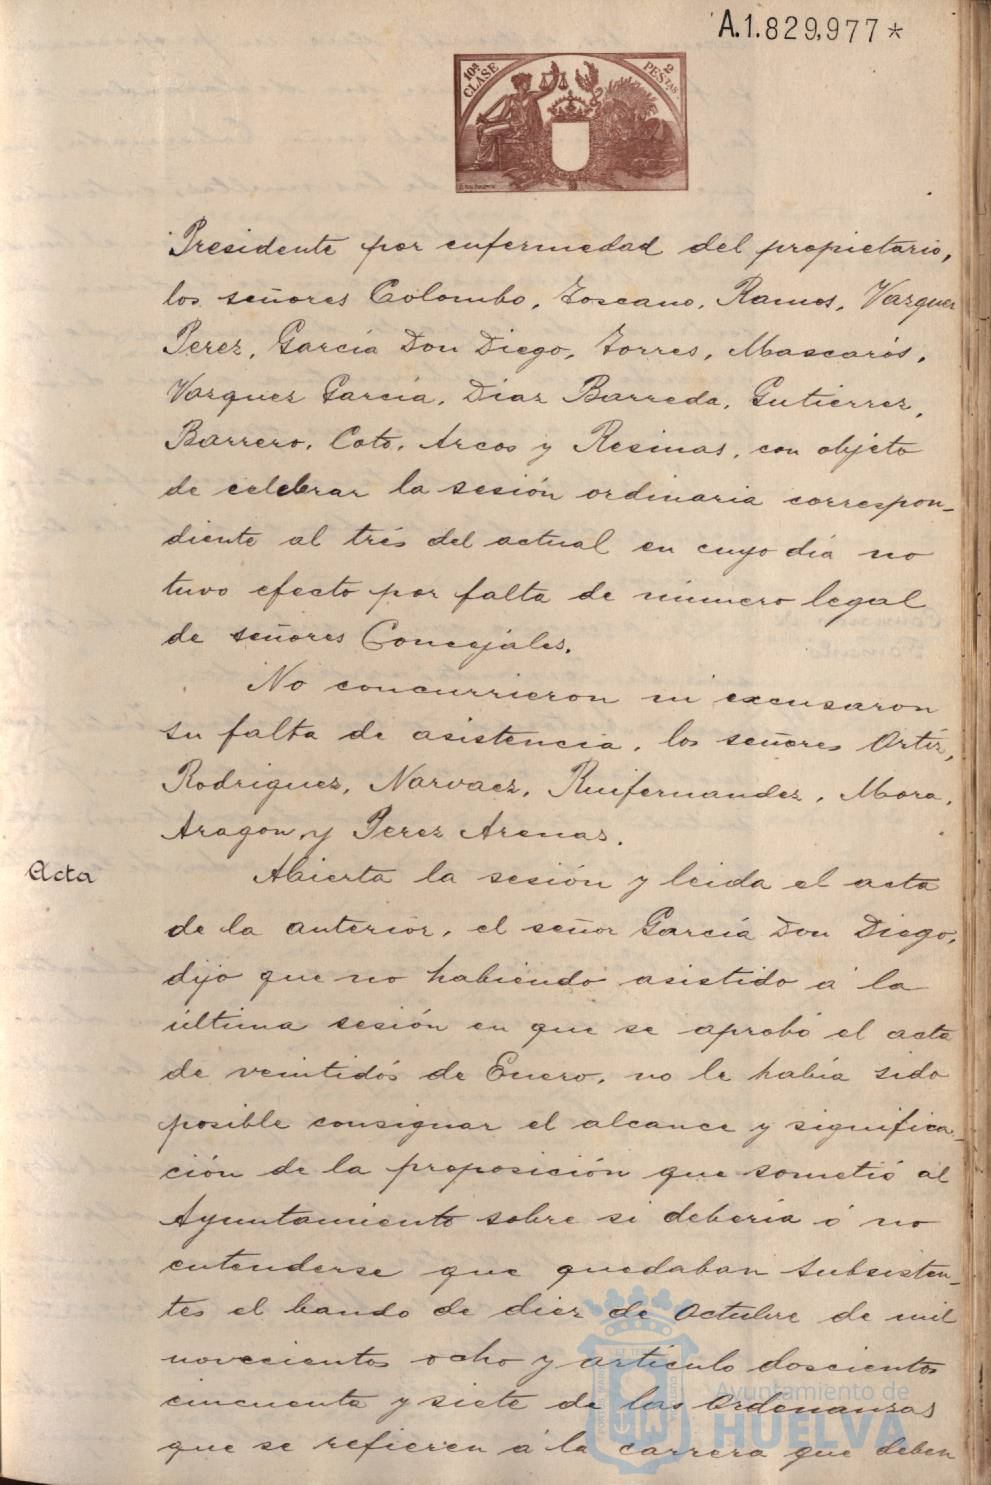 A.1.829,977*
10ª CLASE
2 PESETAS
Presidente por enfermedad del propietario,
los señores Colombo, Toscano, Ramos, Vazquez
Perez, García Don Diego, Torres, Mascarós,
Vazquez García, Diaz Barreda, Gutierrez,
Barrero, Coto, Arcos y Resinas, con objeto
de celebrar la sesión ordinaria correspon-
diente al trés del actual en cuyo día no
tuvo efecto por falta de número legal
de señores Concejales.
No concurrieron ni excusaron
su falta de asistencia, los señores Ortiz,
Rodriguez, Narvaez, Ruifernandez, Mora,
Aragon, y Perez Arenas.
Acta
Abierta la sesión y leida el acta
de la anterior, el señor García Don Diego,
dijo que no habiendo asistido á la
última sesión en que se aprobó el acta
de veintidós de Enero, no le había sido
posible consignar el alcance y significa-
ción de la proposición que sometió al
Ayuntamiento sobre si debería ó no
entenderse que quedaban subsisten-
tes el bando de diez de Octubre de mil
novecientos ocho y artículo doscientos
cincuenta y siete de las Ordenanzas
que se refieren á la carrera que deben
Ayuntamiento de
HUELVA